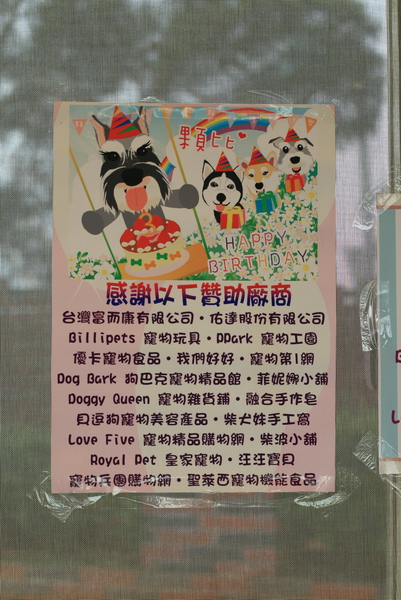 顆比比
HAPPY
BIRTHDAY
感謝以下贊助廠商
台灣富而康有限公司・佑達股份有限公司
Billipets 寵物玩具・PPark 寵物工園
優卡寵物食品・我們好好・寵物第1網
Dog Bark 狗巴克寵物精品館・菲妮娜小舖
Doggy Queen 寵物雜貨鋪・融合手作皂
貝逗狗寵物美容產品・柴犬妹手工窩
Love Five 寵物精品購物網・柴波小舖
Royal Pet 皇家寵物・汪汪寶貝
寵物兵團購物網・聖萊西寵物機能食品